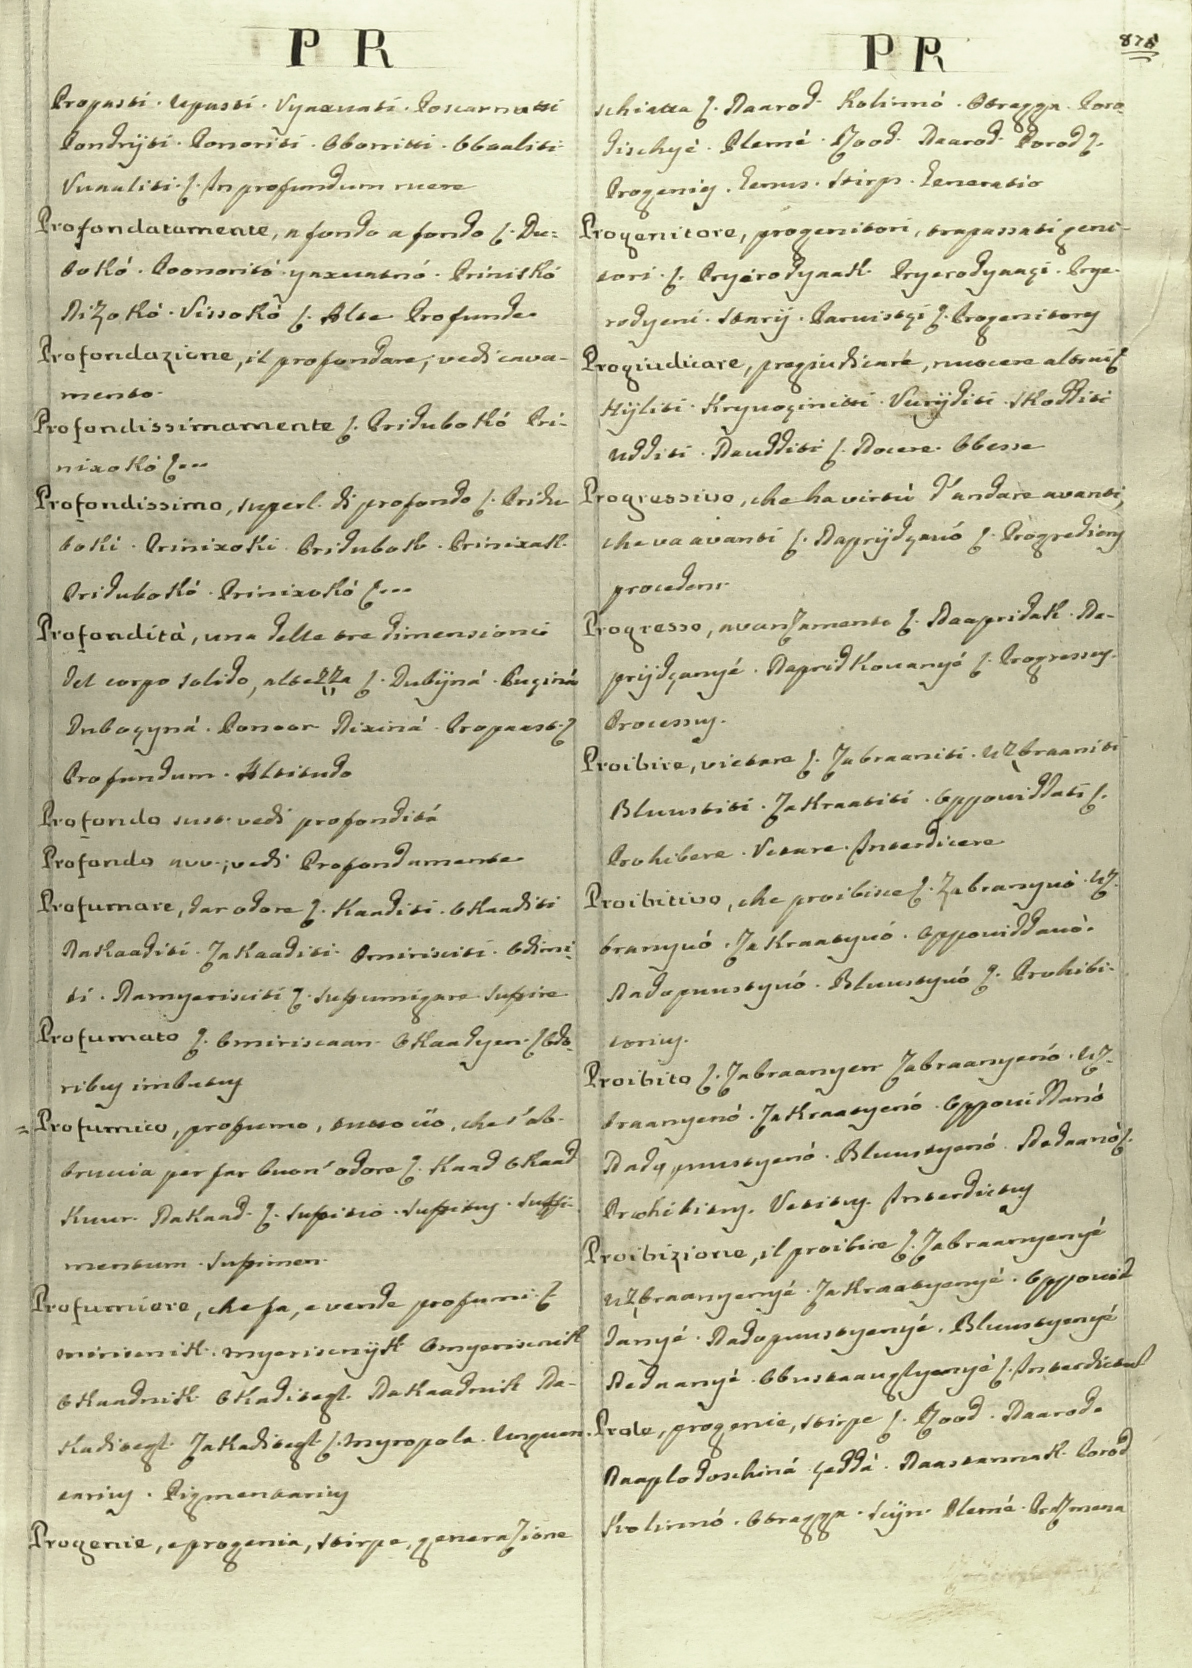 PR
Propasti. Upasti. Vyaxuati. Poscarnutti
Pondrijti. Ponoriti. Oborritti. Obaaliti
Vuaaliti. ſ. In profundum ruere
Profondatamente, a fondo a fondo ſ. Du-
bokó. Poonoritó. yaxuatnó. Priniskó
Nizokó. Vissokó ſ. Alte Profunde
Profondazione, il profondare, vedi cava-
mento.
Profondissimamente ſ. Pridubokó Pri-
nixokó ſ...
Profondissimo, superl. di profondo ſ. Pridu-
boki. Prinixoki. Pridubok. Prinixak.
Pridubokó. Prinixokó ſ...
Profondità, una delle tre dimensioni
del corpo solido, altezza ſ. Dubijná. Puginá
Dubogyná. Ponoor Nixiná. Propaast. ſ
Profundum. Altitudo
Profondo sust. vedi profondità
Profondo avv., vedi Profondamente
Profumare, dar odore ſ. Kaaditi. Okaaditi
Nakaaditi. Zakaaditi. Omirisciti. Odimi-
ti. Namyerisciti ſ. suffumigare suffire
Profumato ſ. Omiriscaan. Okaadyen. ſ Odo-
ribus imbutus
Profumico, profumo, tutto ciò, che s'ab-
brucia per far buon' odore ſ. Kaad Okaad
Kuur. Nakaad. ſ. suffitio. suffitus. suffi-
mentum. suffimen.
Profumiere, che fa, e vende profumi ſ
mirisnik. myeriscnijk Omyeriscnik
Okaadnik. Okaditegl. Nakaadnik Na-
kaditegl. Zakaditegl ſ. myropola. Unguen-
tarius. Pigmentarius
Progenie, e progenia, stirpe, generazione
PR
schiatta ſ. Naarod. Kolinnó. Otragga. Poro-
dischyé. Plemé. Rood. Naarod. Porod ſ.
Progenies. Genus. Stirps. Generatio
Progenitore, progenitori, trapassati geni-
tori. ſ. Pryérodyaak. Pryerodyaagi. Prye-
rodyeni. Starij. Parvistgi ſ. Progenitores
Progiudicare, pregiudicare, nuocere altrui ſ
Hijliti. Kryuoginitti. Vurijditi. Skodditi
Udditi. Naudditi ſ. Nocere. Obesse
Progressivo, che ha virtù d'andare avanti,
che va avanti ſ. Naprijdgauó ſ. Progrediens
procedens.
Progresso, avanzamento ſ. Naapridak. Na-
prijdganyé. Napridkouanyé ſ. Progressus.
Processus.
Proibire, vietare ſ. Zabraaniti. Uzbraaniti
Bluustiti. Zakraatiti. Oppouiddati ſ.
Prohibere. Vetare. Interdicere
Proibitivo, che proibisce ſ. Zabranyuó. Uz-
branyuó. Zakraatyuó. Oppouiddauó.
Nadopuustyuó. Bluustyuó ſ. Prohibi-
torius.
Proibito ſ. Zabraanyen Zabraanyenó. Uz-
braanyenó. Zakraatyenó. Oppouiddanó
Nadopuustyenó. Bluustyenó. Nedaanó ſ.
Prohibitus. Vetitus. Interdictus
Proibizione, il proibire ſ. Zabraanyenyé
Uzbraanyenyé. Zakraatyenyé. Oppouid-
danyé. Nadopuustyenyé. Bluustyenyé
Nedaanyé. Obustaauglyenyé ſ. Interdictus
Prole, progenie, stirpe ſ. Rood. Naarod.
Naaplodoschiná. geddá. Naastannak. Porod
Kolinnó. Otragga. Sijn. Plemé. Prazmena